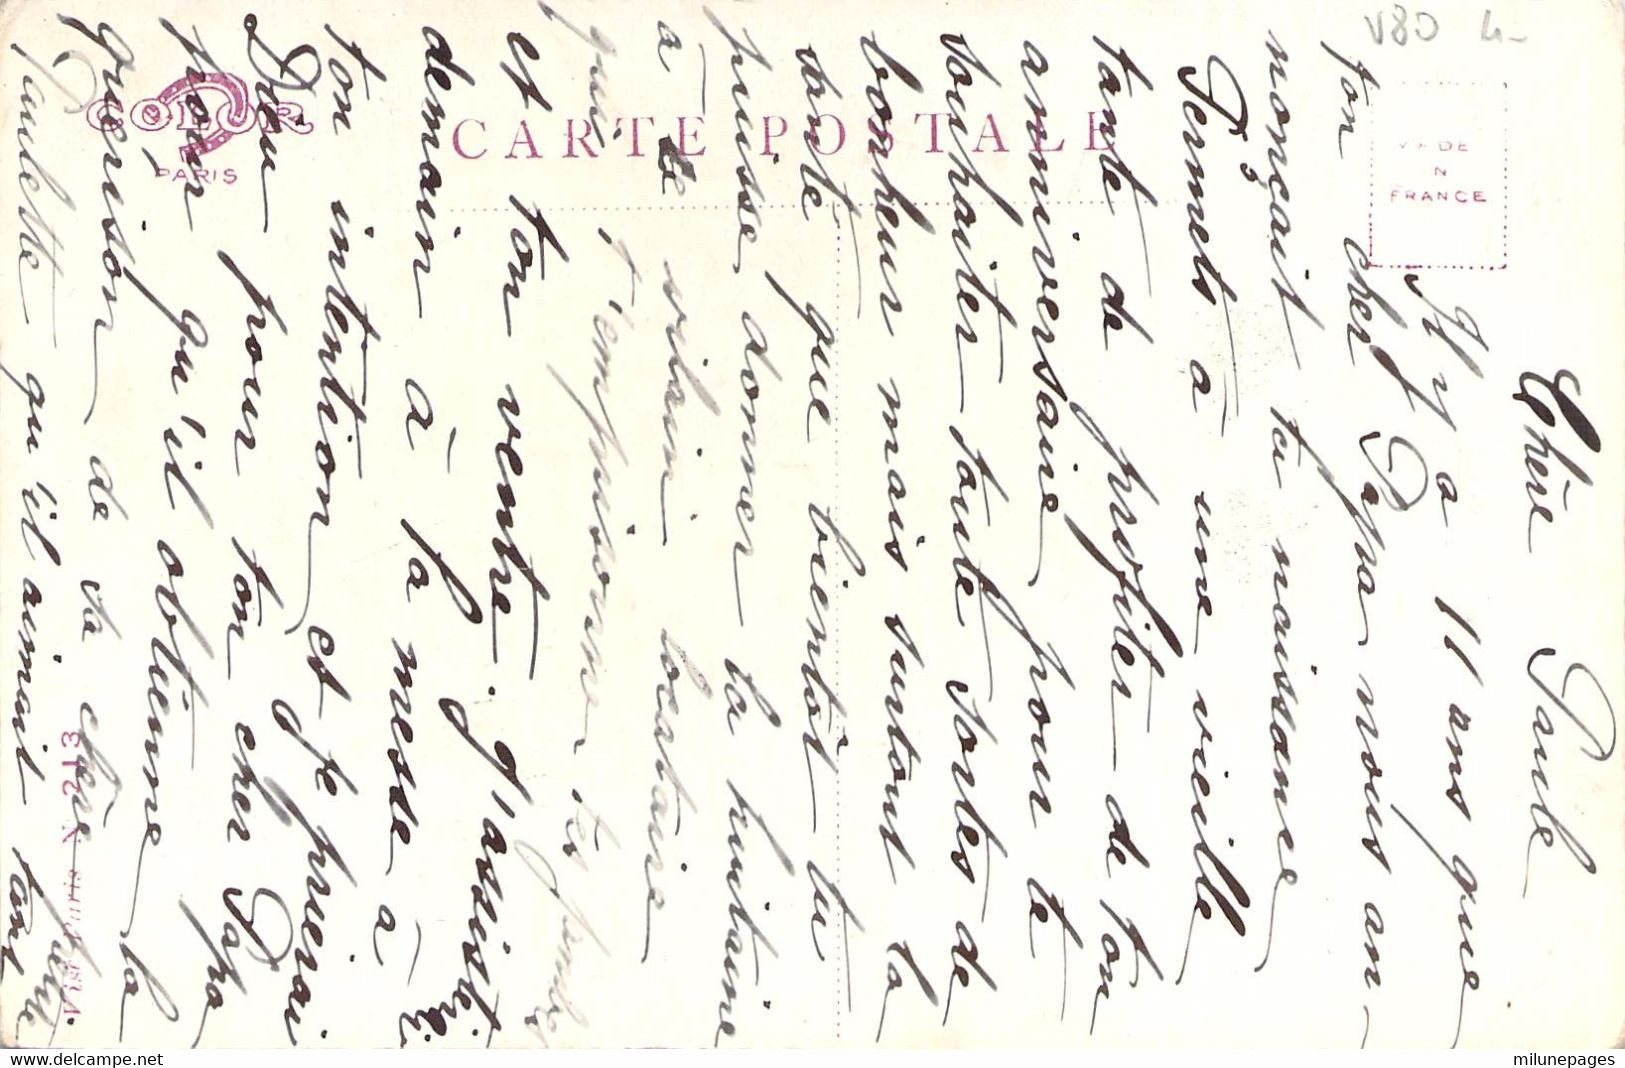 V80 4-
CARTE POSTALE
COLOR
PARIS
MADE
IN
FRANCE
Chère Paule
Il y a 11 ans que
ton cher Papa nous an-
nonçait ta naissance
Permets à une vieille
tante de profiter de ton
anniversaire pour te
souhaiter toute sortes de
bonheur mais surtout la
santé que bientôt tu
puisse donner la huitaine
à ce vilain locataire
qui t'empoisonne tes jambes
et ton ventre. J'assisterai
demain à la messe à
ton intention et je prierai
Dieu pour ton cher Papa
pour qu'il obtienne la
guérison de sa chère
Paulette qu'il aimait tant
312 X
Visé Paris
milunepages